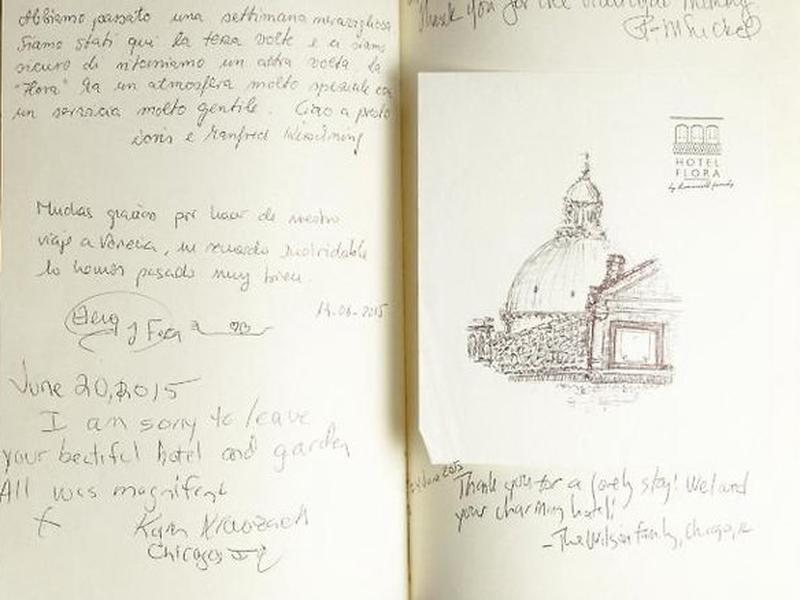 Abbiamo passato una settimana meravigliosa
Siamo stati qui la terza volte e a siamo
sicuro di ritorniamo un altra volta la
"Flora" ha un atmosfera molto speziale con
un servicio molto gentile. Ciao a presto
Doris e Manfred
Muchas gracias por hacer de nuestro
viaje a Venecia, un recuerdo inolvidable
lo hemos pasado muy bien.
14-06-2015
y
June 20, 2015
I am sorry to leave
your beatiful hotel and garden
All was magnifent
Chicago
Thank you for the
HOTEL
FLORA
by family
June 2015
Thank you for a lovely stay! We
your charming hotel!
- The Wilson Family, Chicago, IL